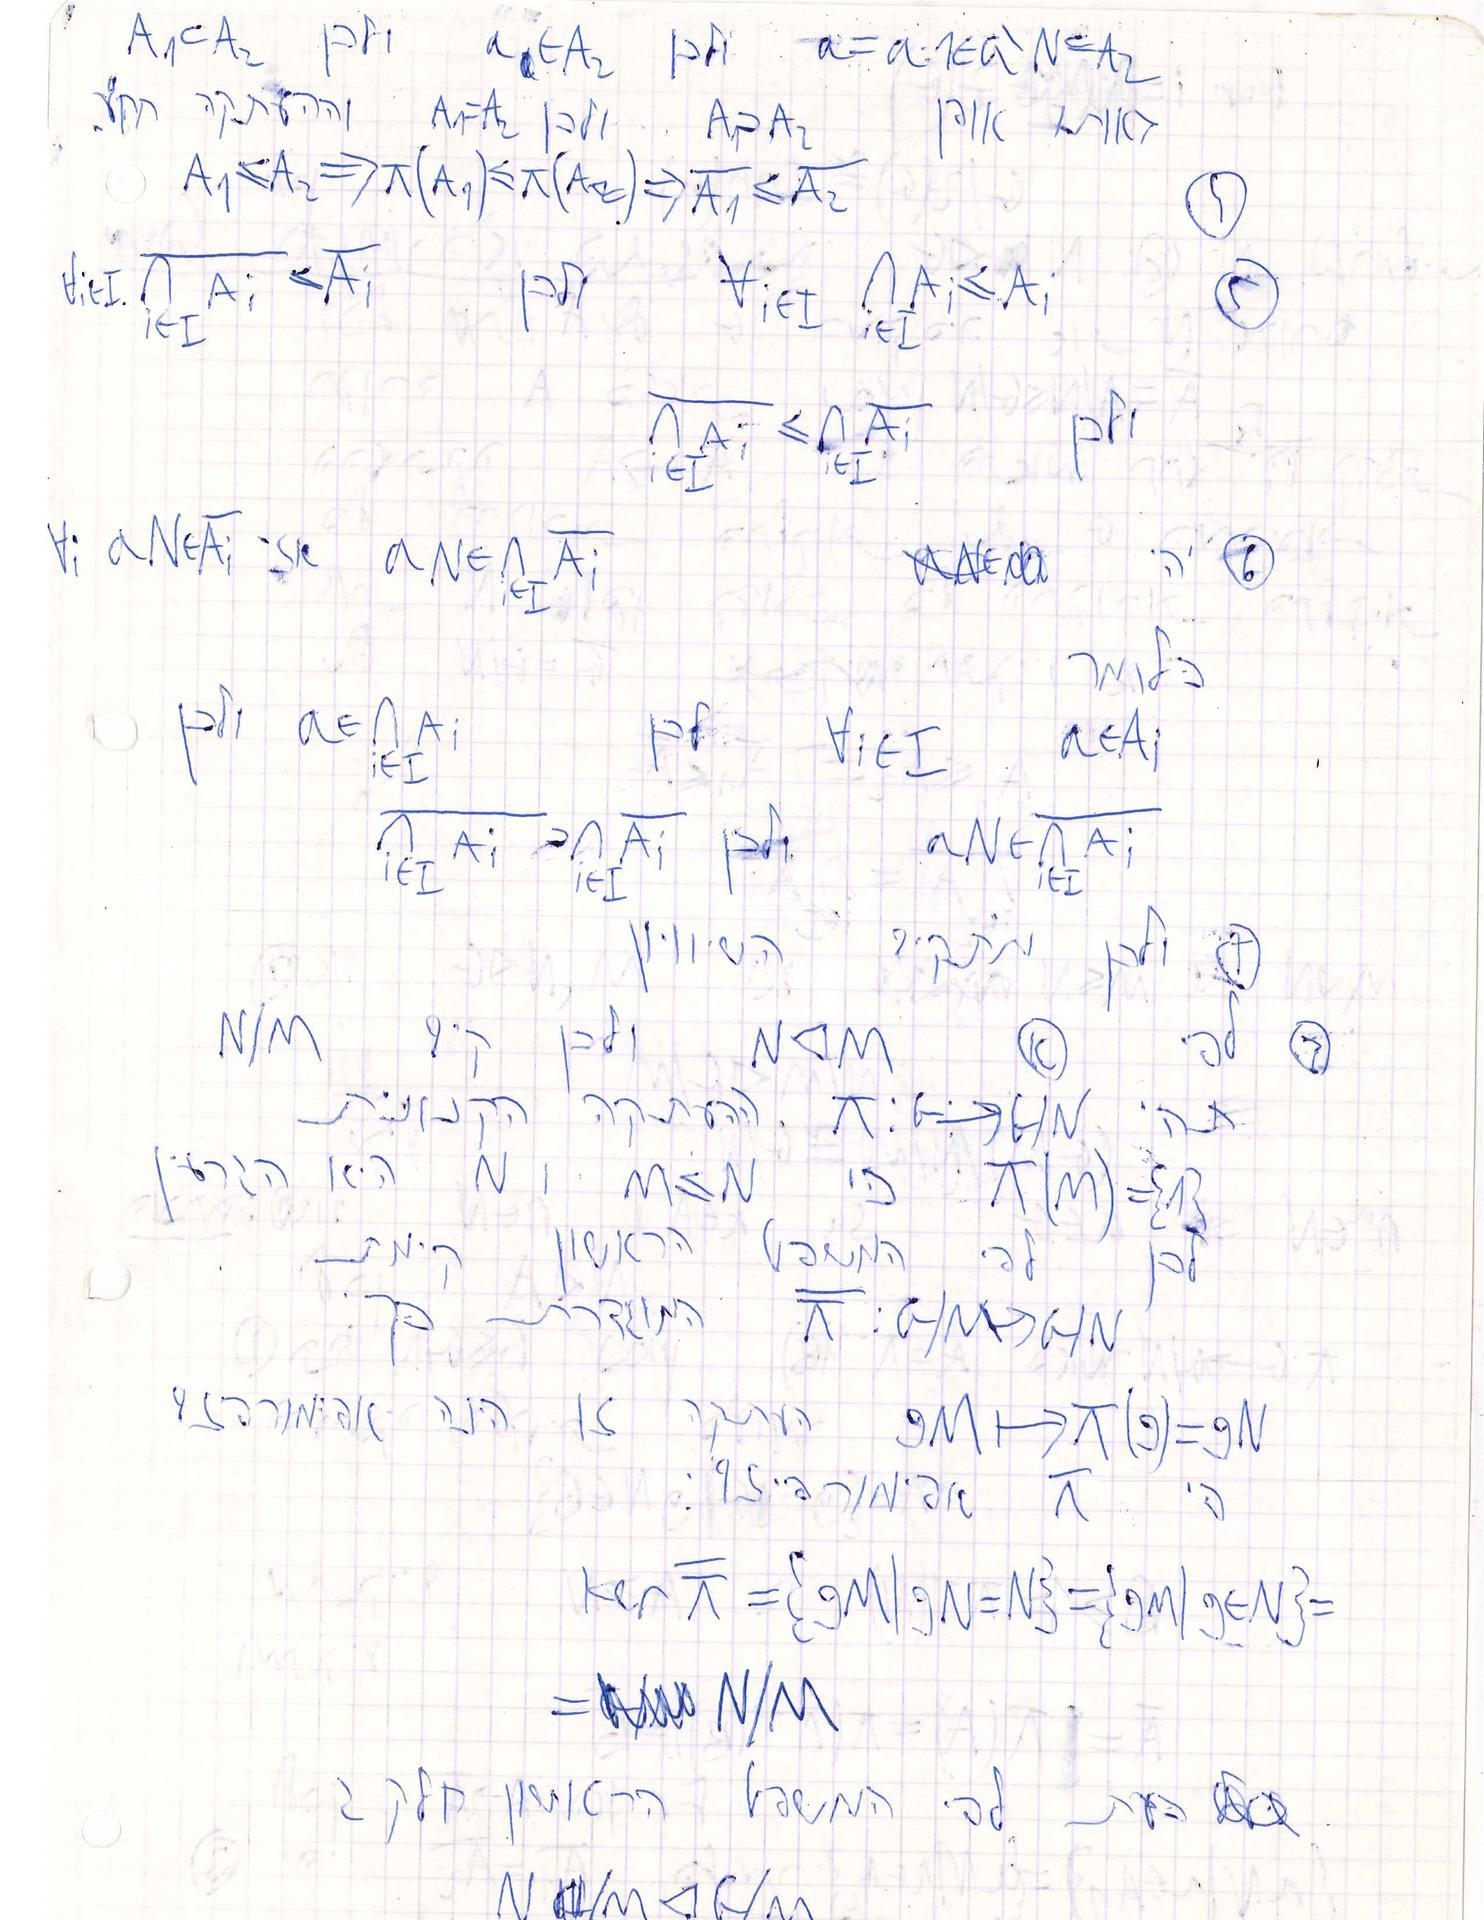 a=a·1∈aN⊂A₂ ולכן a₁∈A₂ ולכן A₁⊂A₂
באותו אופן A₁⊃A₂ ולכן A₁=A₂ וההעתקה חח"ע
A₁≤A₂ ⇒ π(A₁)≤π(A₂) ⇒ \overline{A₁}≤\overline{A₂}
∀i∈I ⋂_{i∈I} A_i ≤ A_i ולכן ∀i∈I. \overline{⋂_{i∈I} A_i} ≤ \overline{A_i}
ולכן \overline{⋂_{i∈I} A_i} ≤ ⋂_{i∈I} \overline{A_i}
⑥ יהי aN∈⋂_{i∈I} \overline{A_i} אז: ∀i aN∈\overline{A_i}
כלומר
a∈A_i ∀i∈I לכן a∈⋂_{i∈I} A_i ולכן
aN∈\overline{⋂_{i∈I} A_i} ולכן \overline{⋂_{i∈I} A_i} ⊃ ⋂_{i∈I} \overline{A_i}
ולכן מתקיים השיוויון
לפי ⓐ N⊲M ולכן קיים N/M
תהי π:G→G/N ההעתקה הקנונית
π(M)={1} כי M≤N ו N היא הגרעין
לכן לפי המשפט הראשון קיימת
\overline{π}:G/M→G/N המוגדרת כך:
gM↦π(g)=gN העתקה זו הינה אפימורפיזם
כי π אפימורפיזם:
ker \overline{π}={gM|gN=N}={gM|g∈N}=
=N/M
כעת לפי המשפט הראשון חלק ג
N/M⊲G/M